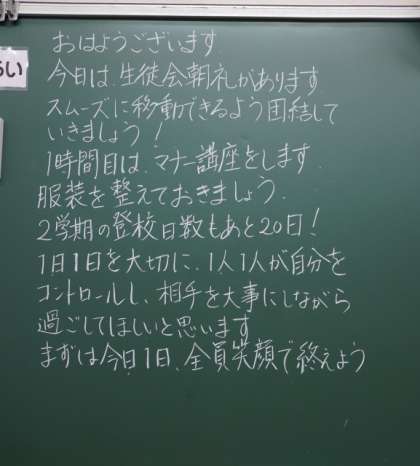 おはようございます
らい
今日は、生徒会朝礼があります
スムーズに移動できるよう団結して
いきましょう!
1時間目は、マナー講座をします.
服装を整えておきましょう.
2学期の登校日数もあと20日!
1日1日を大切に、1人1人が自分を
コントロールし、相手を大事にしながら
過ごしてほしいと思います
まずは今日1日、全員笑顔で終えよう